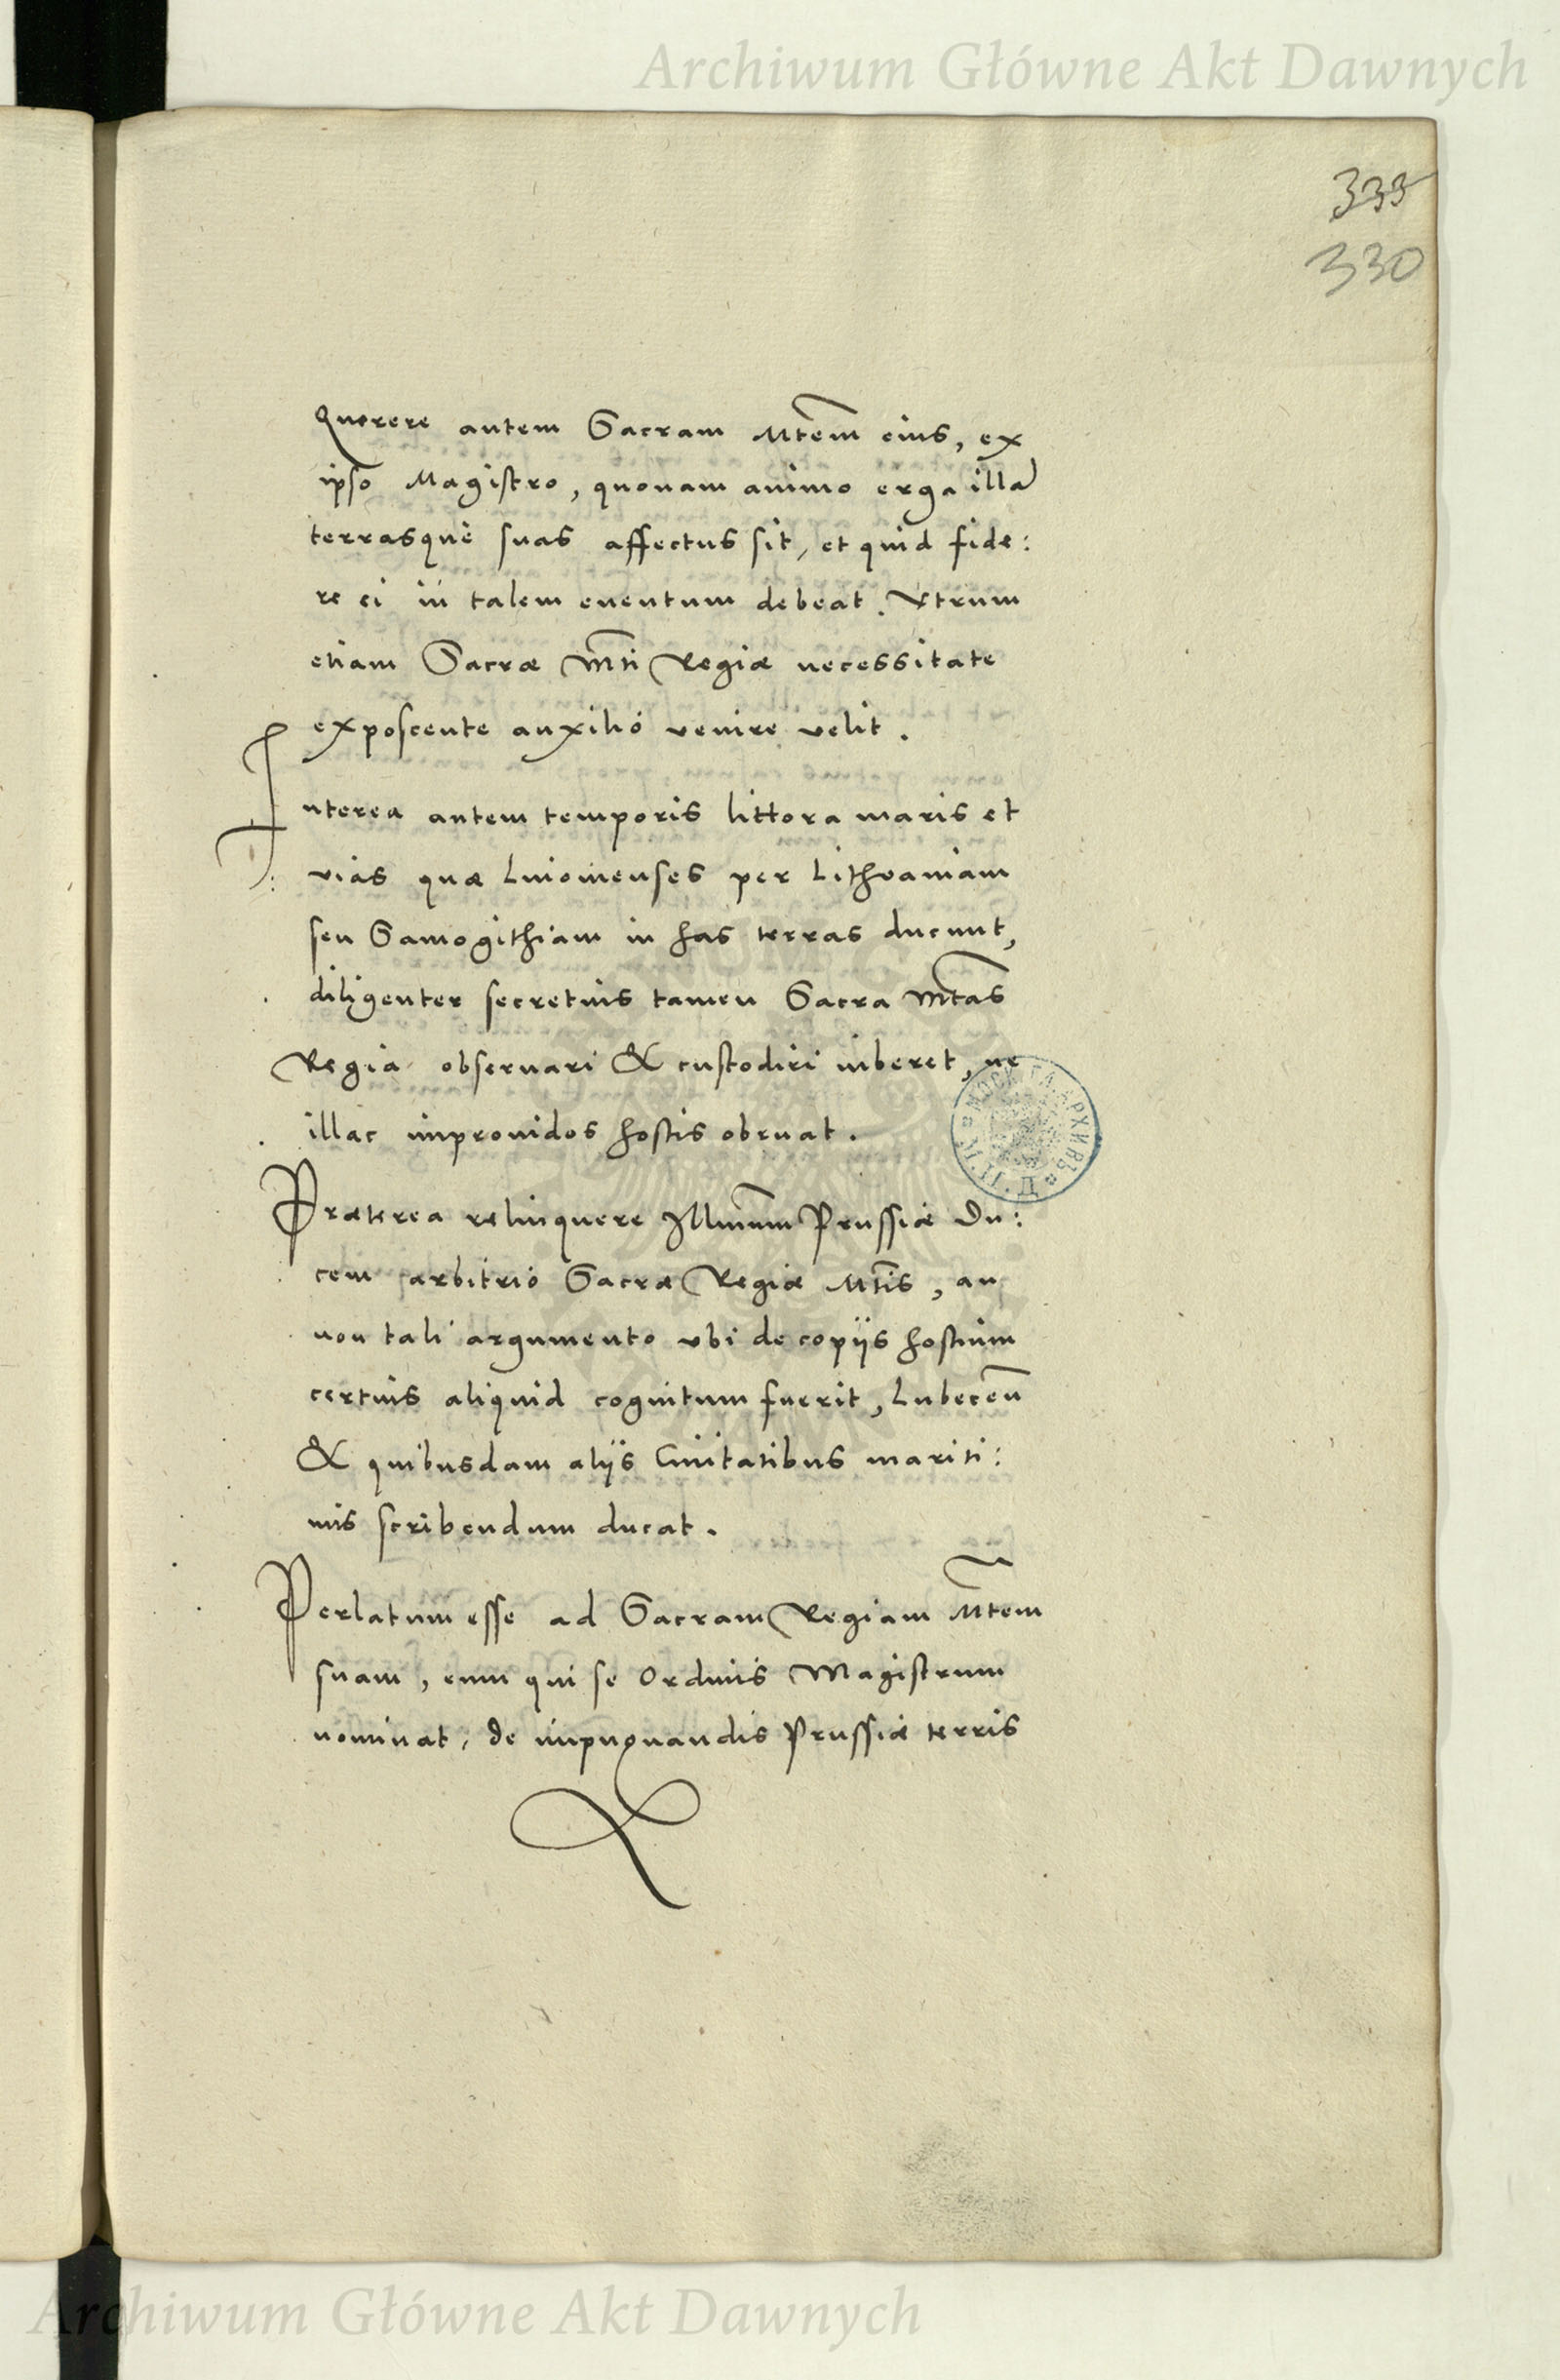 Archiwum Główne Akt Dawnych
339
330
Querere autem Sacram Mtem eius, ex
ipso Magistro, quonam animo erga illã
terrasque suas affectus sit, et quid fide:
re ei in talem euentum debeat. Vtrum
etiam Sacræ Mti Regiæ necessitate
exposcente auxilió venire velit.
Interea autem temporis littora maris et
vias quæ Liuonienses per Lithvaniam
seu Samogithiam in has terras ducunt,
diligenter secretius tamen Sacra Mtas
Regia obseruari & custodiri iuberet, ne
illac improuidos hostis obruat.
Præterea relinquere Illmum Prussiæ Du:
cem arbitrió Sacræ Regiæ Mtis, an
non tali argumento vbi de copijs hostium
certius aliquid cognitum fuerit, Lubecen
& quibusdam alijs Ciuitatibus mariti:
mis scribendum ducat.
Perlatum esse ad Sacram Regiam Mtem
suam, eum qui se Ordinis Magistrum
nominat, de impugnandis Prussiæ terris
Archiwum Główne Akt Dawnych